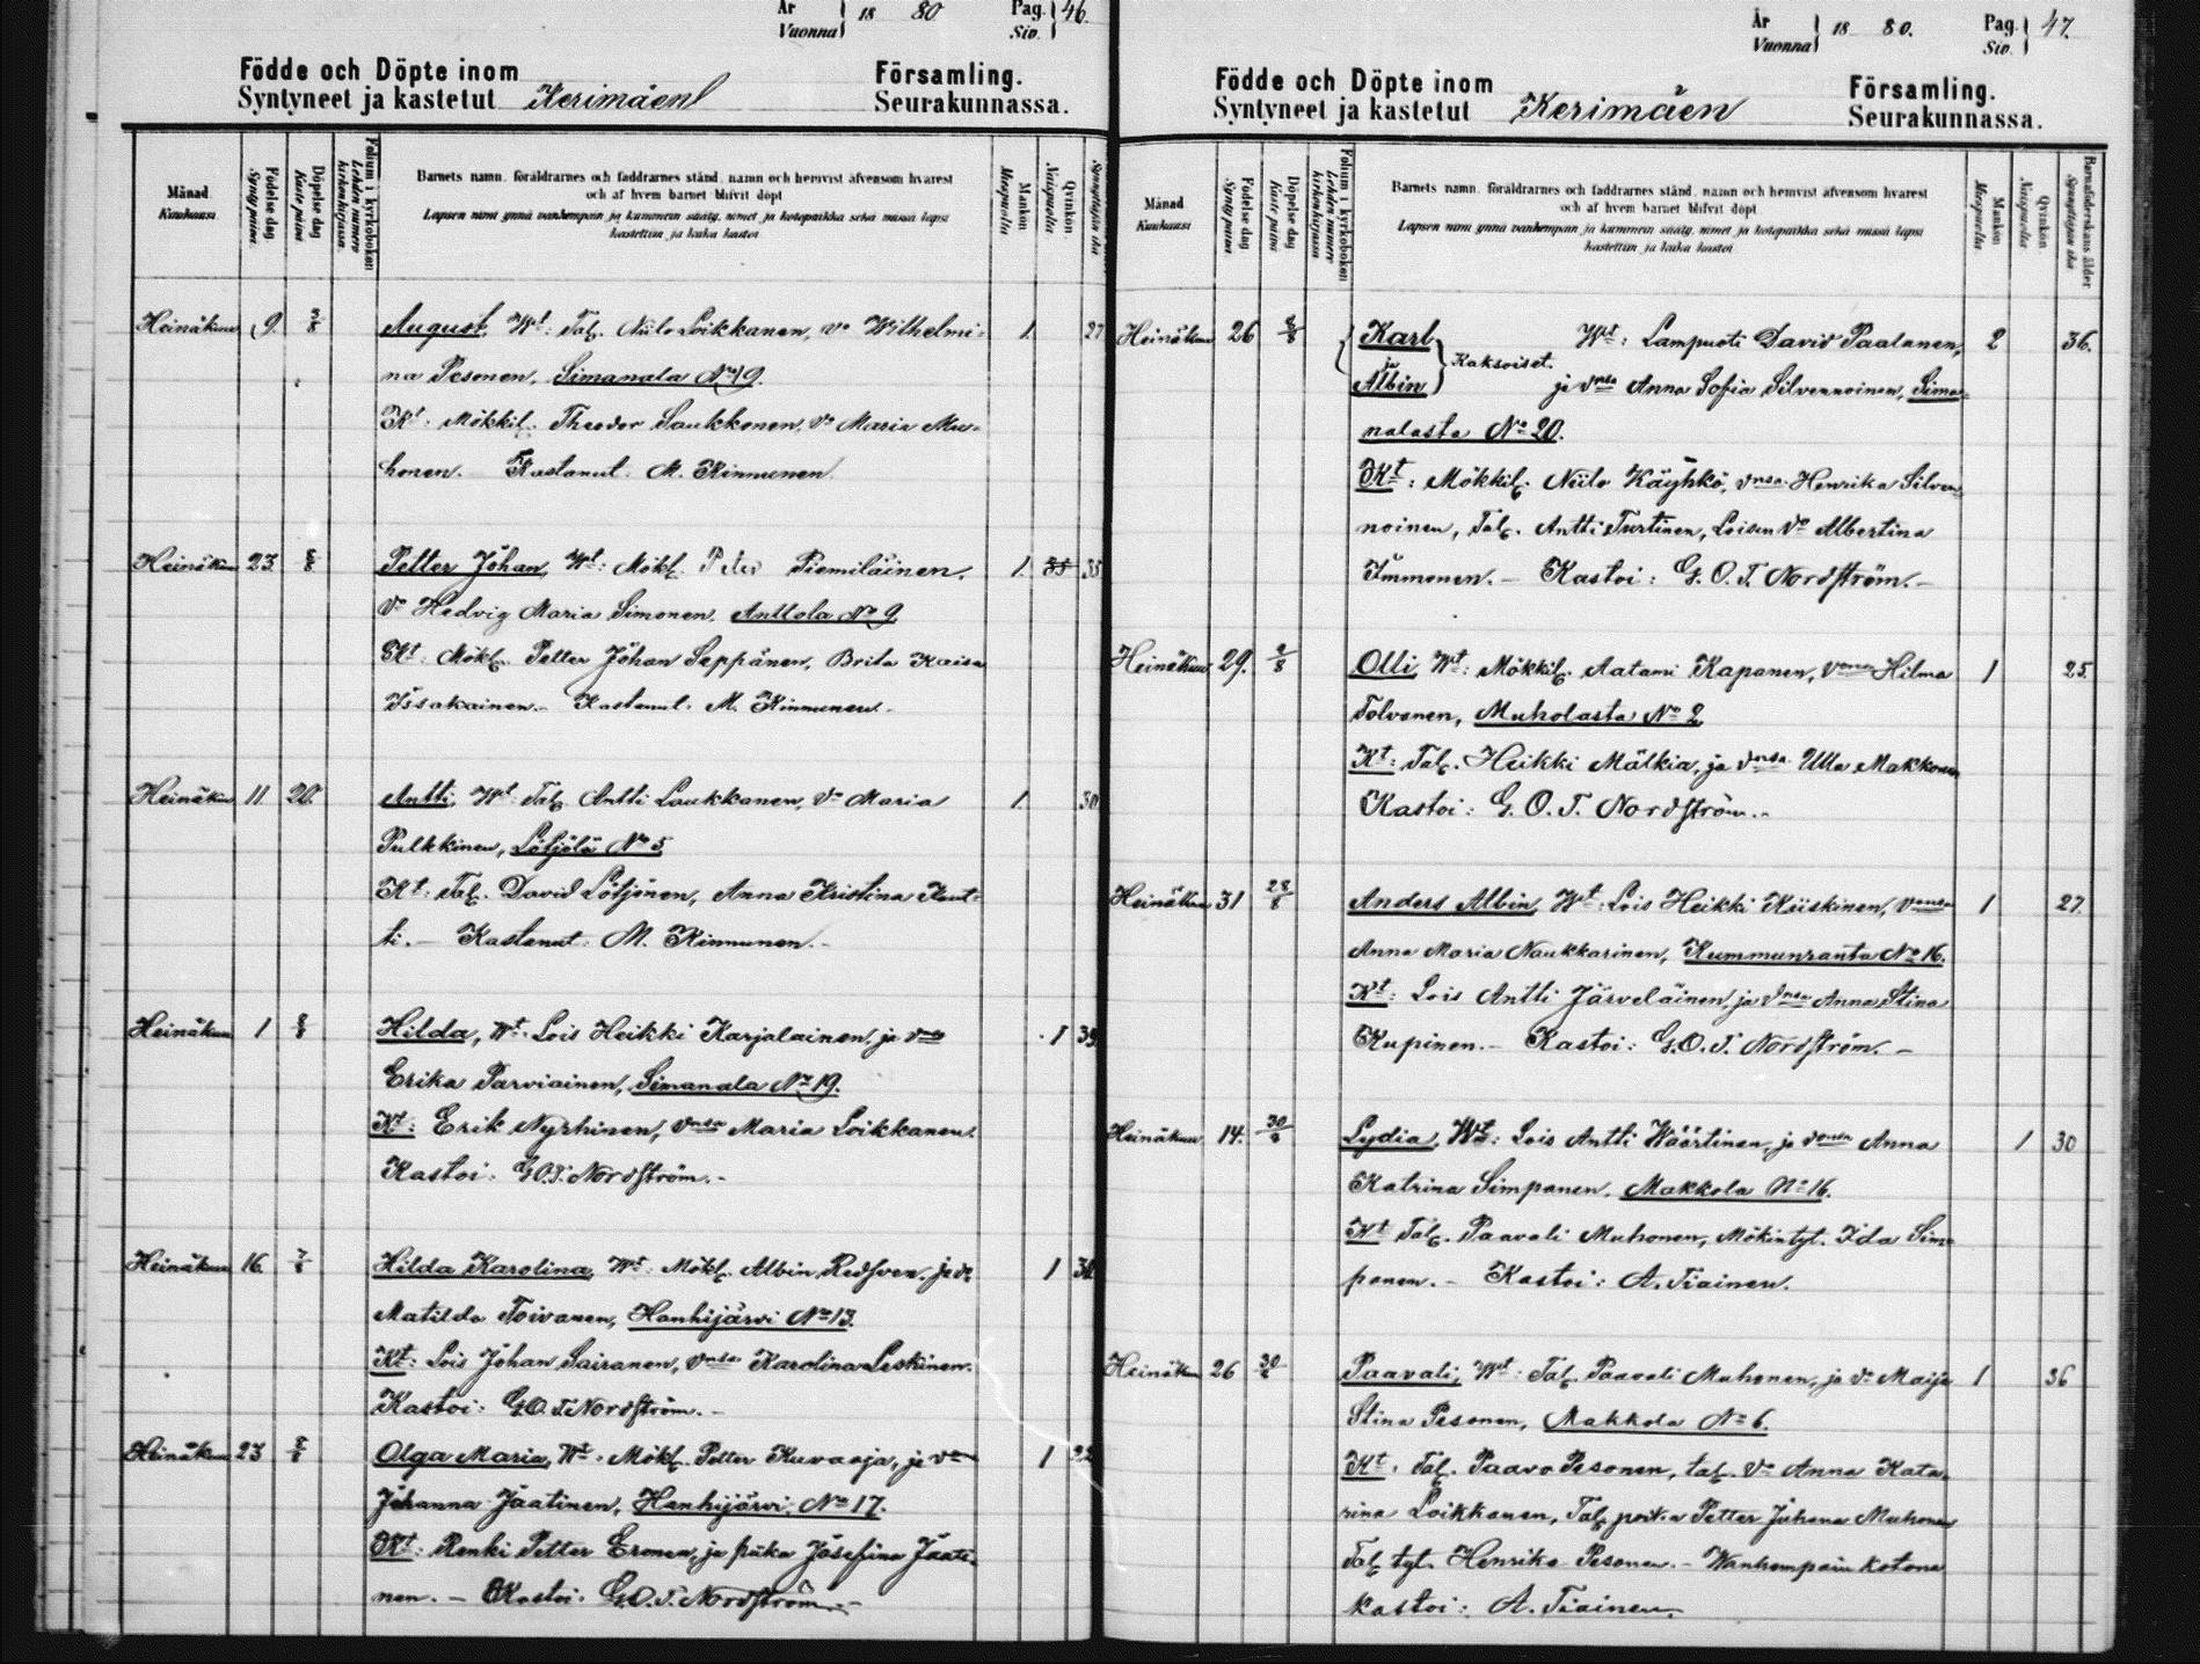 År Vuonna } 18 80 Pag. Siv. } 46.
Födde och Döpte inom Församling.
Syntyneet ja kastetut Kerimäen Seurakunnassa.
Månad Kuukausi
Födelse dag Synty päivä
Döpelse dag Kaste päivä
Folium i kyrkoboken Lehden numero kirkonkirjassa
Barnets namn, föräldrarnes och faddrarnes stånd, namn och hemvist äfvensom hvarest
och af hvem barnet blifvit döpt
Lapsen nimi ynnä vanhempain ja kummein sääty, nimet ja kotopaikka sekä missä lapsi
kastettiin ja kuka kastoi
Mankön Miespuolta
Qvinkön Naispuolta
Heinäkuu 9. 3/8 August, Wt: Tal. Niilo Loikkanen, vo Wilhelmi- 1. 27
na Pesonen, Simanala No 19.
Kt: Mökkil. Theodor Saukkonen, vo Maria Mu-
honen. Kastanut M. Kinnunen.
Heinäkuu 23. 8/8 Petter Johan, Wt: Mökl. Piemiläinen, 1. 35 35
vo Hedvig Maria Simonen, Anttola No 9
Kt: Mökl. Petter Johan Seppänen, Brita Kaisa
Issakainen. Kastanut. M. Kinnunen.
Heinäkuu 11 20. Antti, Wt: Tal. Antti Laukkanen, vo Maria 1. 30
Pulkkinen, Lötjölä No 5
Kt: Tal. David Lötjönen, Anna Kristina Kaut-
ti. - Kastanut: M. Kinnunen.-
Heinäkuu 1 8/8 Hilda, Wt: Lois Heikki Karjalainen, ja vmo 1 39
Erika Parviainen, Simanala No 19.
Kt: Erik Nyrhinen, vnsa Maria Loikkanen.
Kastoi: G.O.T. Nordström.-
Heinäkuu 16. 7/8 Hilda Karolina, Wt: Mökl. Albin Redsven, ja vo 1
Matilda Toivanen, Hanhijärvi No 13.
Kt: Lois Johan Sairanen, vnsa Karolina Leskinen.
Kastoi: G.O.T. Nordström.-
Heinäkuu 23 8/8 Olga Maria, Wt: Mökl. Petter Kuvaaja, ja vo 1 22
Johanna Jaatinen, Hanhijärvi, No 17.
Kt: Renki Petter Eronen, ja piika Josefina Jaati-
nen. - Kastoi: G.O.T. Nordström.-
År Vuonna } 18 80. Pag. Siv. } 47.
Födde och Döpte inom Församling.
Syntyneet ja kastetut Kerimäen Seurakunnassa.
Månad Kuukausi
Födelse dag Synty päivä
Döpelse dag Kaste päivä
Folium i kyrkoboken Lehden numero kirkonkirjassa
Barnets namn, föräldrarnes och faddrarnes stånd, namn och hemvist äfvensom hvarest
och af hvem barnet blifvit döpt
Lapsen nimi ynnä vanhempain ja kummein sääty, nimet ja kotopaikka sekä missä lapsi
kastettiin ja kuka kastoi
Mankön Miespuolta
Qvinkön Naispuolta
Barnaföderskans ålder Synnyttäjän ikä
Heinäkuu 26 8/8 { Karl Wt: Lampuoti David Paalanen, 2 36.
ja } Kaksoiset.
Albin ja vnsa Anna Sofia Silvennoinen, Sima-
nalasta No 20.
Kt: Mökkil. Niilo Käyhkö, vnsa Henrika Silven-
noinen, Tal. Antti Turtinen, Loisen vo Albertina
Immonen. - Kastoi: G.O.T. Nordström.-
Heinäkuu 29. 9/8 Olli, Wt: Mökkil. Aatami Kapanen, vonsa Hilma 1 25.
Tolvanen, Muholasta No 2
Kt: Tal. Heikki Mälkiä, ja vnsa Ulla Makkonen
Kastoi: G.O.T. Nordström.-
Heinäkuu 31 28/8 Anders Albin, Wt: Lois Heikki Kiiskinen, vonsa 1 27.
Anna Maria Naukkarinen, Kummunranta No 16.
Kt: Lois Antti Järveläinen, ja vnsa Anna Stina
Kupinen. - Kastoi: G.O.T. Nordström.-
Heinäkuu 14. 30/8 Lydia, Wt: Lois Antti Wäärtinen, ja vonsa Anna 1 30
Katrina Simpanen, Makkola No 16.
Kt: Tal. Paavali Muhonen, Mökintyt. Ida Sim-
panen. - Kastoi: A. Tiainen.
Heinäkuu 26 30/8 Paavali, Wt: Tal. Paavali Muhonen, ja vo Maija 1 36
Stina Pesonen, Makkola No 6.
Kt: Tal. Paavo Pesonen, tal. vo Anna Kata-
rina Loikkanen, Tal. poika Petter Juhana Muhonen
Tal. tyt. Henrika Pesonen. - Wanhempain kotona
kastoi: A. Tiainen.